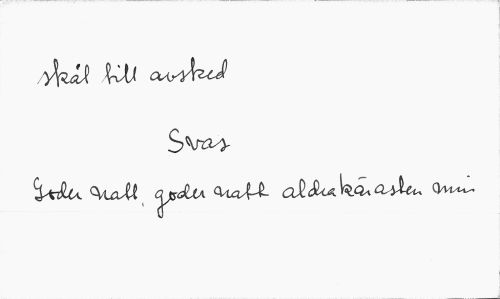 skål till avsked
Svas
Goder natt, goder natt aldrakärasten min